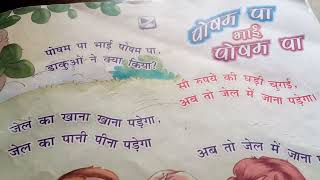 पोषम पा
भाई
पोषम पा
पोषम पा भाई पोषम पा,
डाकुओं ने क्या किया?
सौ रुपये की घड़ी चुराई,
अब तो जेल में जाना पड़ेगा।
जेल का खाना खाना पड़ेगा,
जेल का पानी पीना पड़ेगा
अब तो जेल में जाना